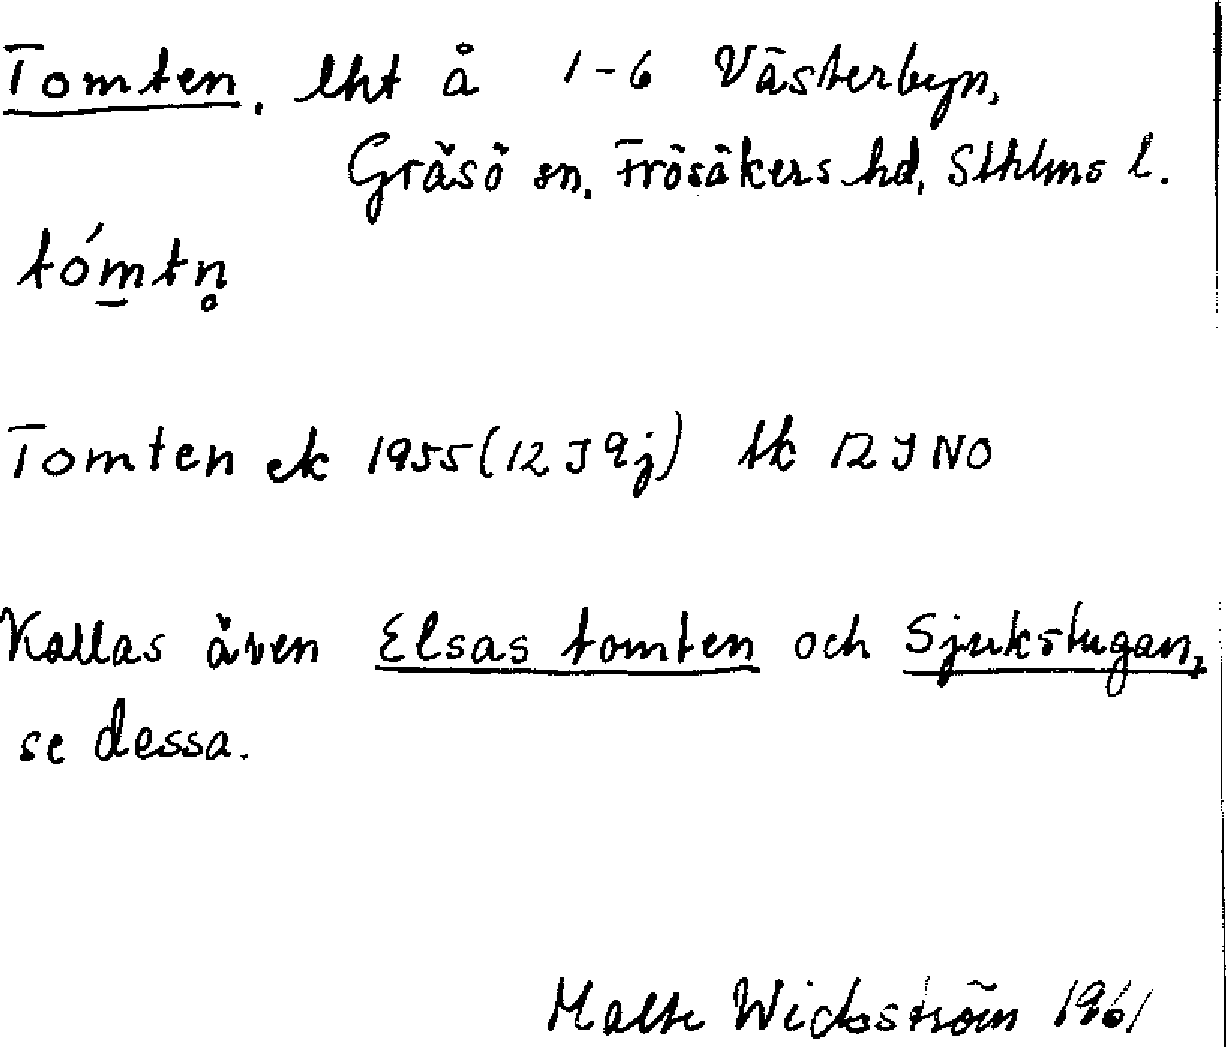 Tomten, lht å 1-6 Västerbyn,
Gräsö sn, Frösåkers hd, Sthlms l.
tómtn̥
Tomten ek 1955 (12 I 9j) tk 12 I NO
Kallas även Elsas tomten och Sjukstugan,
se dessa.
Malte Widströms 1961